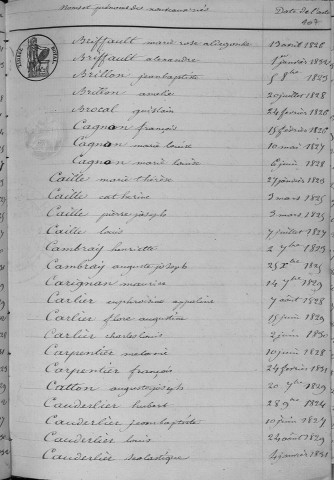 Noms et prénoms des nouveaux nés Date de l'acte
TIMBRE ROYAL
Briffault marie rose aldegonde 13 avril 1826
Briffault alexandre 1 janvier
Brillon jean baptiste 5 8bre 1823
Brillon amélie 20 juillet 1828
Brocal guislain 24 février 1826
Cagnon françois 15 février 1826
Cagnon marie louise 10 mai 1827
Cagnon marie louise 6 juin 1828
Caille marie thérèse 27 janvier 1823
Caille catherine 3 mars 1825
Caille pierre joseph 3 mars 1825
Caille louis 7 juillet 1827
Cambray henriette 2 7bre 1823
Cambray auguste joseph 25 Xbre 1825
Carignan maurice 14 7bre 1829
Carlier euphroisine appoline 7 août 1828
Carlier flore augustine 15 juin 1829
Carlier charles louis 2 juin 1830
Carpentier melanie 10 juin 1828
Carpentier françois 24 février 1831
Catton auguste joseph 20 7bre 1829
Cauderlier hubert 28 9bre 1824
Cauderlier jean baptiste 10 juin 1827
Cauderlier louis 24 août 1829
Cauderlier scolastique 4 janvier 1831